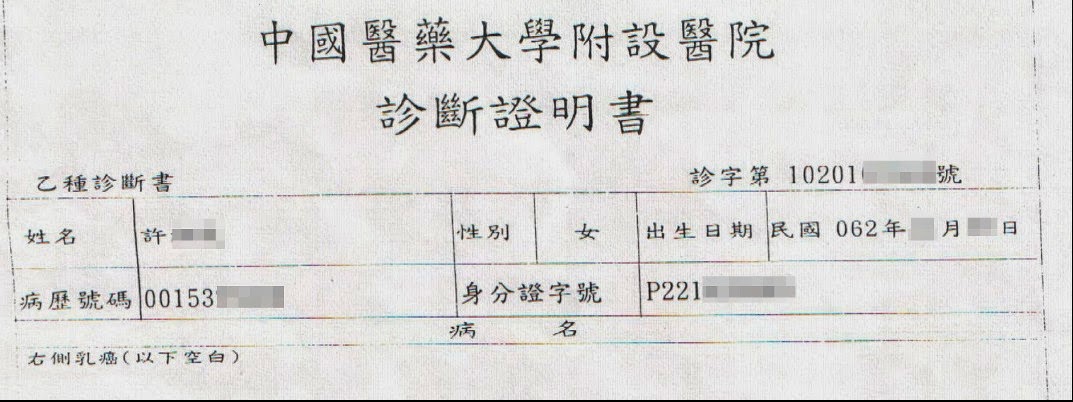 中國醫藥大學附設醫院
診斷證明書
乙種診斷書 診字第 10201 號
姓名 許 性別 女 出生日期 民國 062年 月 日
病歷號碼 00153 身分證字號 P221
病 名
右側乳癌(以下空白)